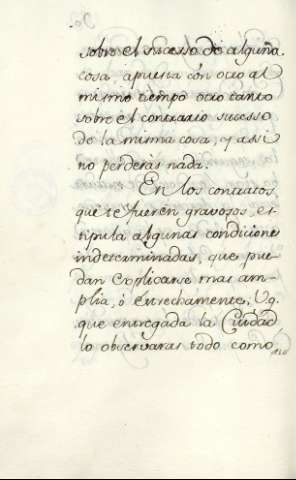 sobre el sucesso de alguña
cosa, apuesta cón otro al
mismo tiempo otro tanto
sobre el contrario sucesso
de la misma cosa, y assi
no perderás nada.
En los contratos,
que te fueren gravosos, es-
tipula algunas condiciones
indeterminadas, que pue-
dan explicarse mas am-
plia, ò estrechamente, V.g.
que entregada la Ciudad
lo observaras todo como